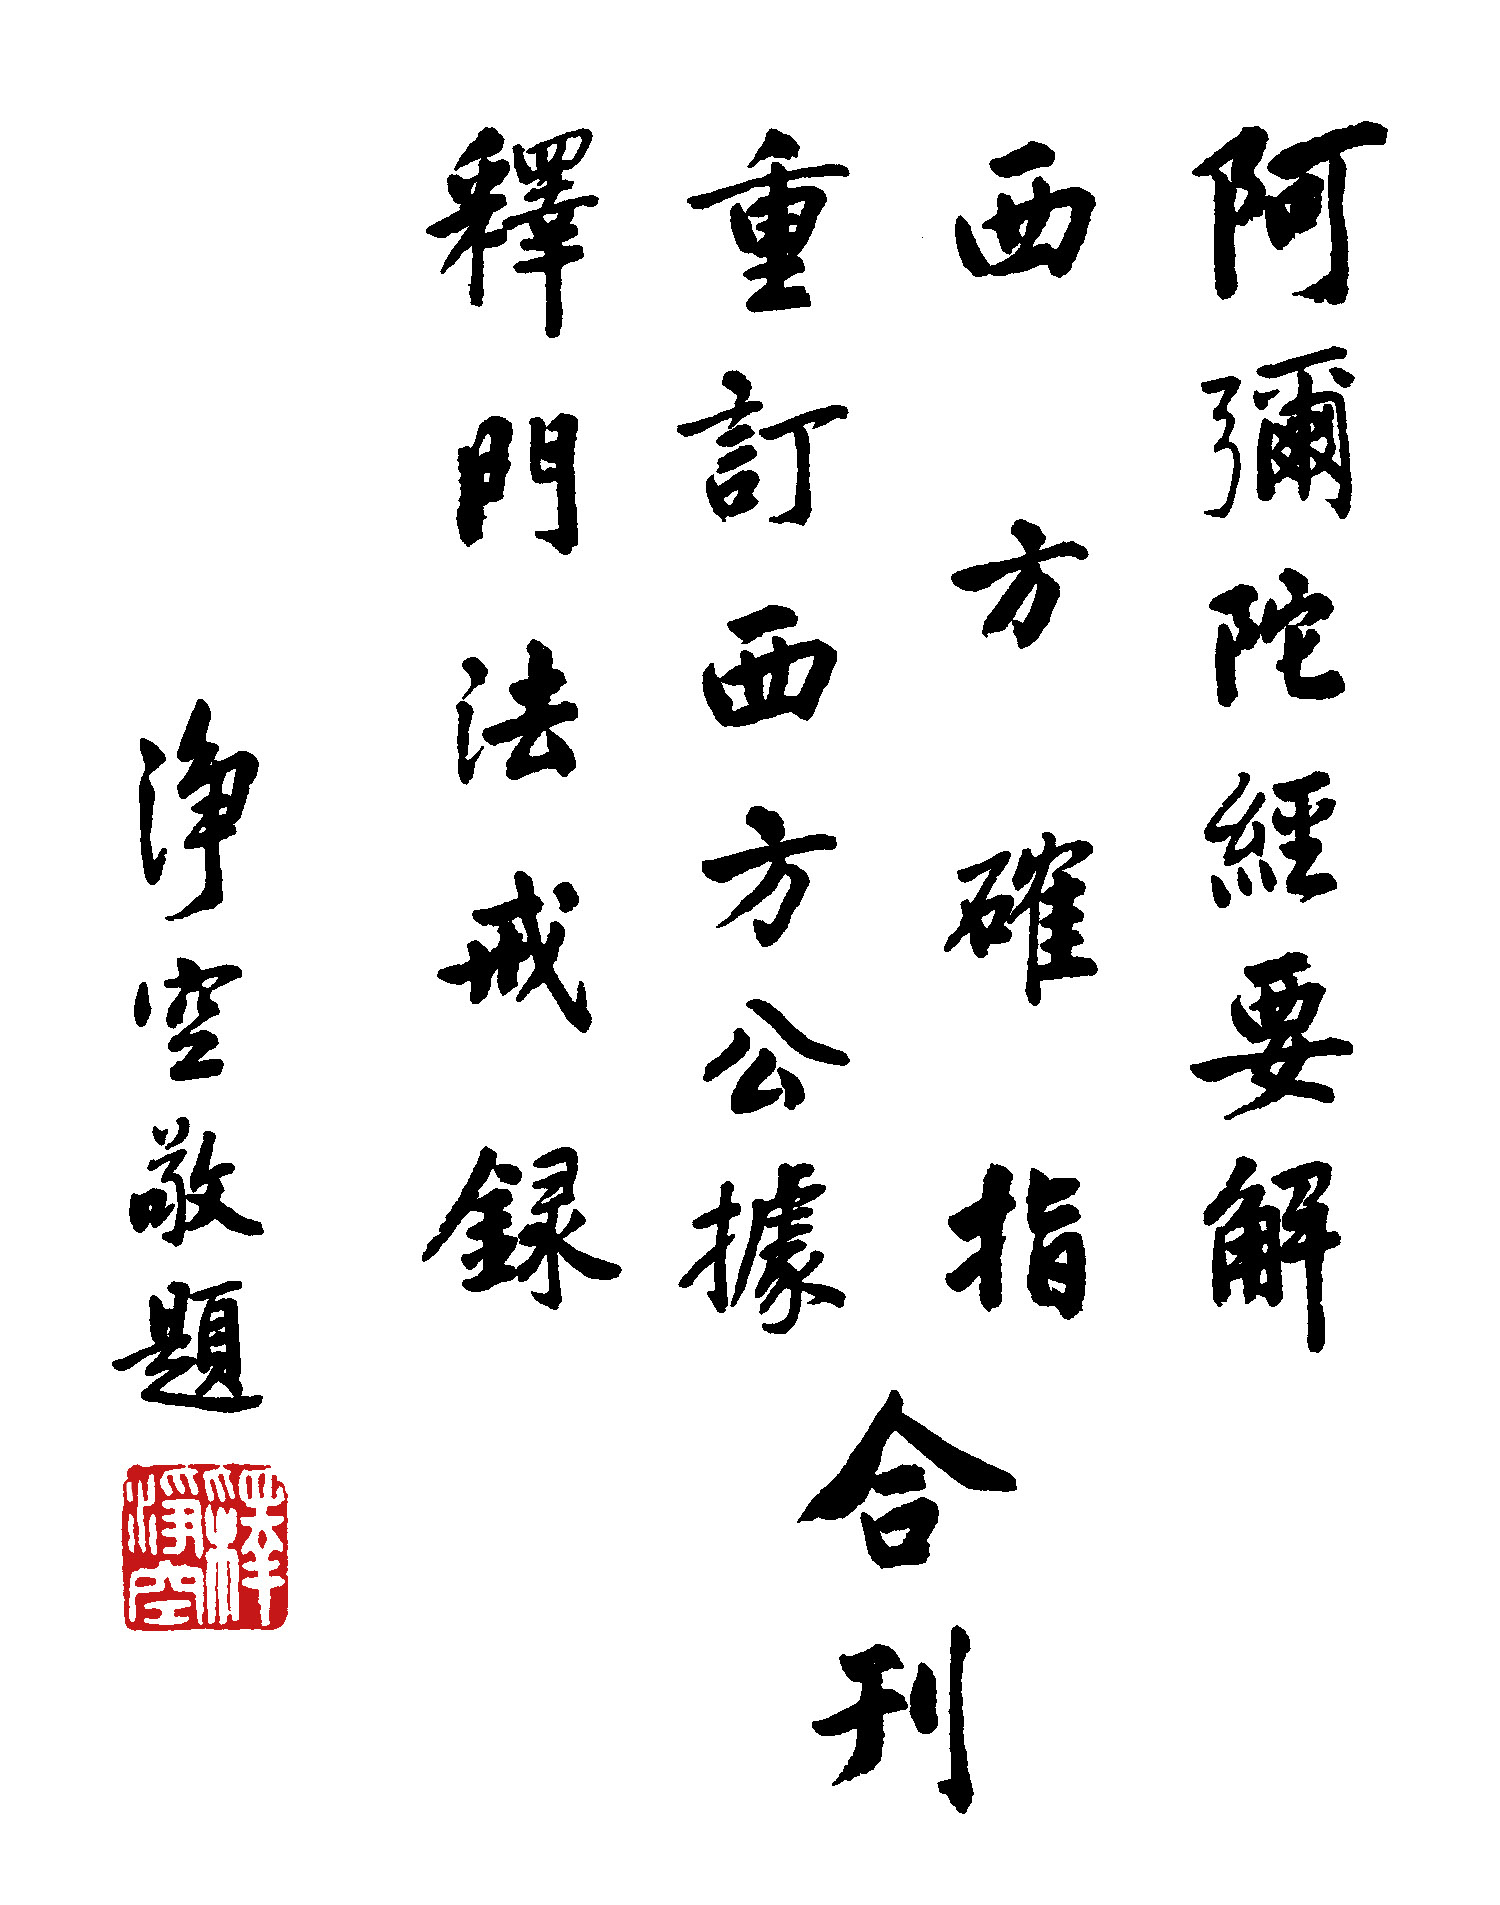 阿彌陀經要解
西方確指
重訂西方公據
釋門法戒録
合刊
淨空敬題
釋淨空